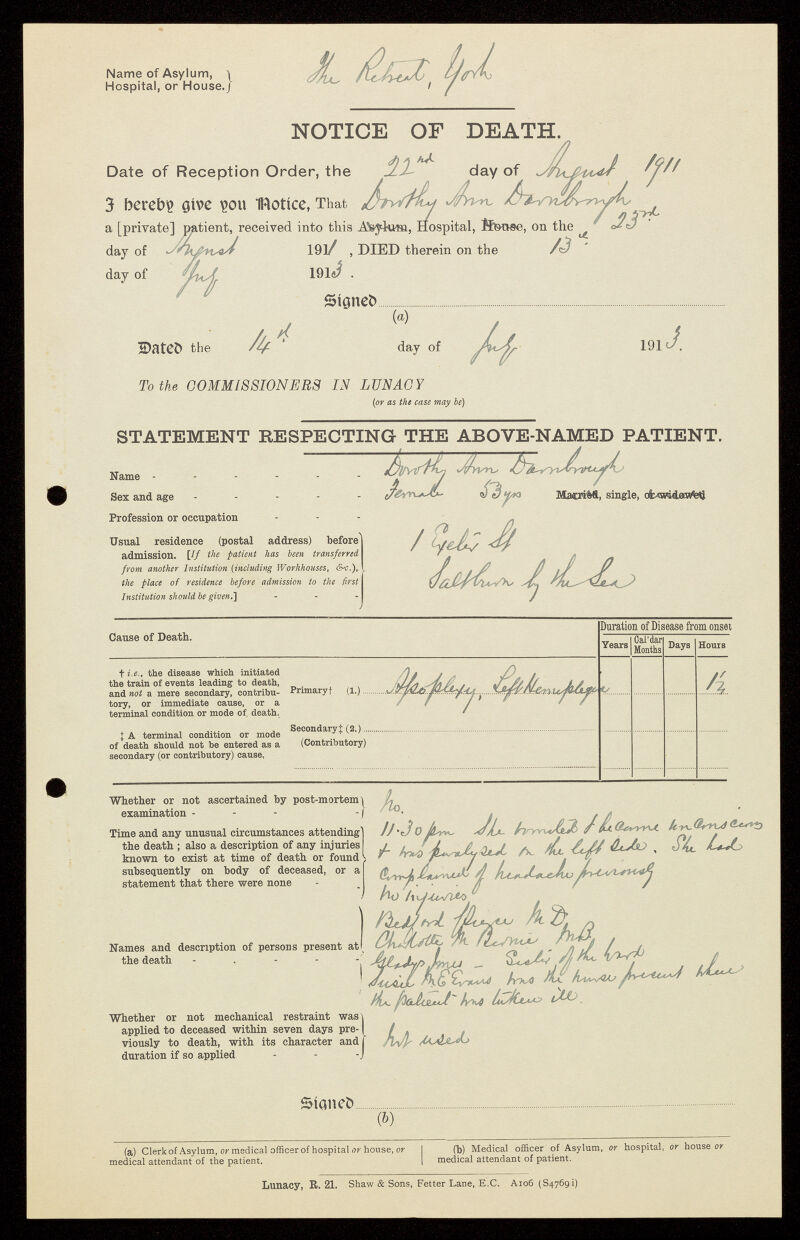 Name of Asylum, } The Retreat, York
Hospital, or House.
NOTICE OF DEATH.
Date of Reception Order, the 22nd day of August 1911
I hereby give you Notice, That Dorothy Ann Darnbrough
a [private] patient, received into this Asylum, Hospital, House, on the 23rd
day of August 1911, DIED therein on the 13
day of July 1913.
Signed
(a)
Dated the 14th day of July 1913.
To the COMMISSIONERS IN LUNACY
(or as the case may be)
STATEMENT RESPECTING THE ABOVE-NAMED PATIENT.
Name - - - - - - Dorothy Ann Darnbrough
Sex and age - - - - - Female 53 yrs Married, single, or widowed
Profession or occupation - - -
Usual residence (postal address) before 1 Exeter St
admission. [If the patient has been transferred
from another Institution (including Workhouses, &c.), Saltburn by the Sea
the place of residence before admission to the first
Institution should be given.] - - -
Duration of Disease from onset
Cause of Death. Years Cal'dar Months Days Hours
† i.e., the disease which initiated
the train of events leading to death,
and not a mere secondary, contribu-
tory, or immediate cause, or a
terminal condition or mode of death.
Primary† (1.) Apoplexy, Left Hemiplegia
‡ A terminal condition or mode
of death should not be entered as a
secondary (or contributory) cause.
Secondary‡ (2.)
(Contributory)
Whether or not ascertained by post-mortem
examination - - - - No.
Time and any unusual circumstances attending
the death; also a description of any injuries
known to exist at time of death or found
subsequently on body of deceased, or a
statement that there were none - -
11.30 pm She vomited & became unconscious
& was paralysed on the left side. She had
complained of headache previously
No injuries
Names and description of persons present at
the death - - - -
Bedford Pierce M.D.
Charlotte M Bernie M.B.
Gladys Jones - Sister of the Ward
Susie M E Evans was the nurse present when
the patient was taken ill.
Whether or not mechanical restraint was
applied to deceased within seven days pre-
viously to death, with its character and
duration if so applied - - -
Not used
Signed
(b)
(a) Clerk of Asylum, or medical officer of hospital or house, or
medical attendant of the patient.
(b) Medical officer of Asylum, or hospital, or house or
medical attendant of patient.
Lunacy, R. 21. Shaw & Sons, Fetter Lane, E.C. A106 (S4769i)